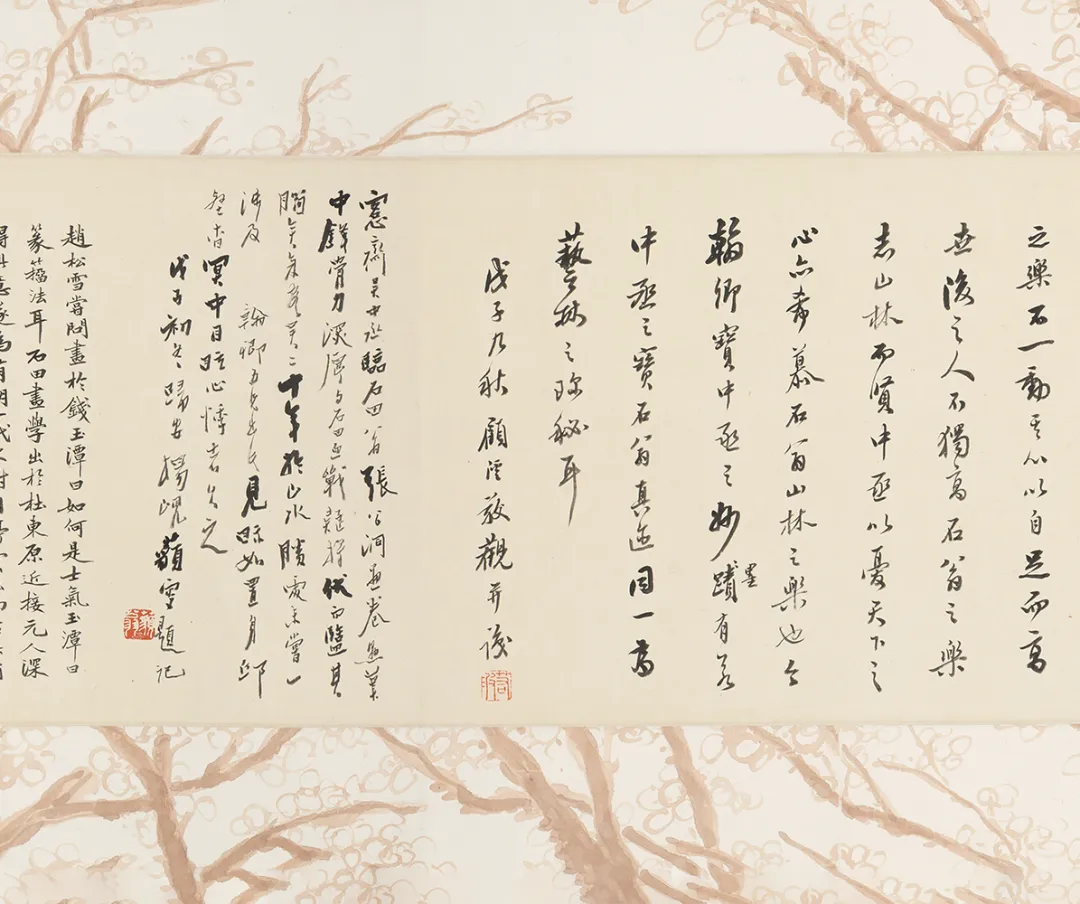 之樂石一動其心以自足而高
世後之人不獨高石翁之樂
志山林而賢中丞以憂天下之
心亦希慕石翁山林之樂也今
翰卿寶中丞之妙墨蹟有若
中丞之寶石翁真迹同一為
藝林之珍秘耳
戊子九秋顧澐敬觀并識
愙齋吳中丞臨石田翁張公洞畫卷
中鋒骨力深厚與石田
二十年於山水勝處未嘗一
涉及
翰卿五兄出此見眎如置身
冥中目眩心悸者久之
戊子初冬歸安楊峴藐翁題記
趙松雪嘗問畫於錢玉潭曰如何是士氣玉潭曰
篆籀法耳石田畫學出於杜東原近接元人深